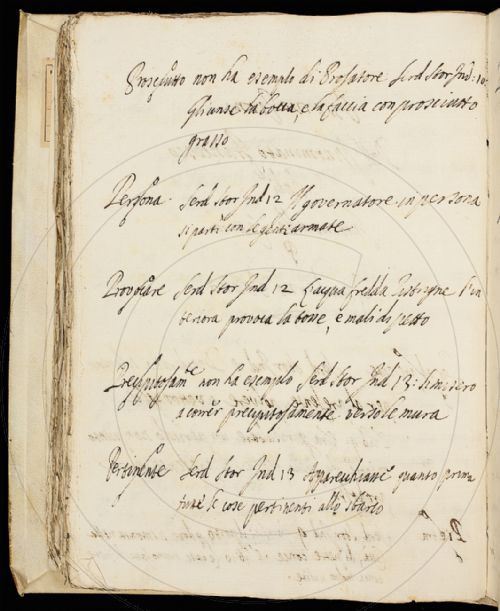 Prosciutto non ha esempio di Prosatore Serd Stor Ind: 10
Gli unse la bocca, e la faccia con prosciutto
grasso
Persona Serd Stor Ind 12 Il governatore in persona
si partì con le genti armate
Provocare Serd Stor Ind 12 L'acqua fredda l'in
teriora provoca la tosse, e mali di petto
Precipitosam.te non ha esempio Serd Stor Ind 13: Si misero
a correr precipitosamente verso le mura
Pertinente Serd Stor Ind 13 quanto prima
tutte le cose pertinenti allo sbarco